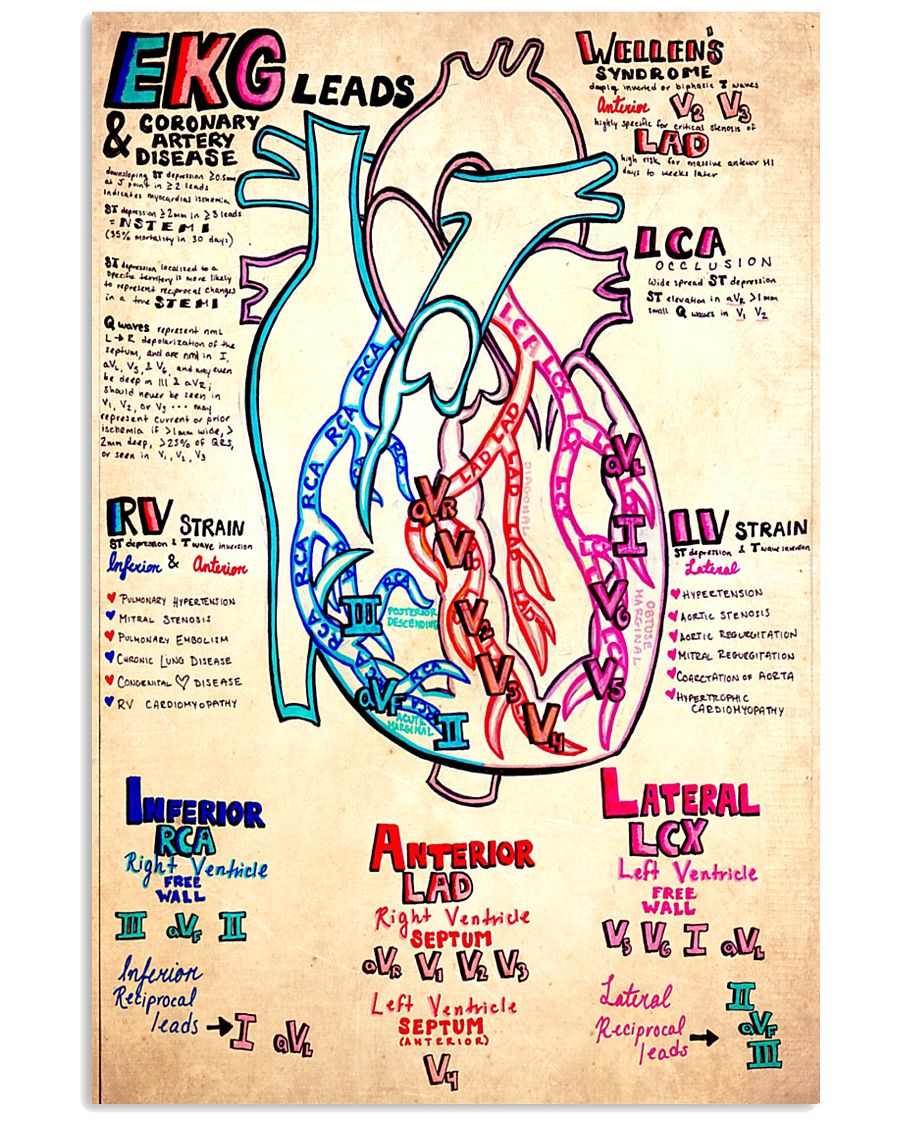 EKG LEADS
& CORONARY
ARTERY
DISEASE
downsloping ST depression ≥0.5mm
at J point in ≥2 leads
indicates myocardial ischemia
ST depression ≥2mm in ≥3 leads
= NSTEMI
(35% mortality in 30 days)
ST depression localized to a
specific territory is more likely
to represent reciprocal changes
in a true STEMI
Q waves represent nml
L → R depolarization of the
septum, and are nml in I,
aVL, V5, & V6, and may even
be deep in III & aVR;
should never be seen in
V1, V2, or V3 ... may
represent current or prior
ischemia if >1mm wide, >
2mm deep, >25% of QRS,
or seen in V1, V2, V3
WELLEN'S
SYNDROME
deeply inverted or biphasic T waves
Anterior V2 V3
highly specific for critical stenosis of
LAD
high risk for massive anteior MI
days to weeks later
LCA
OCCLUSION
Wide spread ST depression
ST elevation in aVR >1mm
small Q waves in V1 V2
RV STRAIN
ST depression & T wave inversion
Inferior & Anterior
PULMONARY HYPERTENSION
MITRAL STENOSIS
PULMONARY EMBOLISM
CHRONIC LUNG DISEASE
CONGENITAL ♡ DISEASE
RV CARDIOMYOPATHY
LV STRAIN
ST depression & T wave inversion
Lateral
HYPERTENSION
AORTIC STENOSIS
AORTIC REGURGITATION
MITRAL REGURGITATION
COARCTATION OF AORTA
HYPERTROPHIC
CARDIOMYOPATHY
RCA
RCA
RCA
RCA
RCA
RCA
RCA
RCA
RCA
RCA
RCA
RCA
LCA
LCX
LCX
LAD
LAD
LAD
LAD
LAD
DIAGONAL
OBTUSE
MARGINAL
POSTERIOR
DESCENDING
ACUTE
MARGINAL
aVR
V1
V2
V3
V4
aVL
I
V6
V5
III
aVF
II
INFERIOR
RCA
Right Ventricle
FREE
WALL
III aVF II
Inferior
Reciprocal
leads → I aVL
ANTERIOR
LAD
Right Ventricle
SEPTUM
aVR V1 V2 V3
Left Ventricle
SEPTUM
(ANTERIOR)
V4
LATERAL
LCX
Left Ventricle
FREE
WALL
V5 V6 I aVL
Lateral
Reciprocal
leads →
II
aVF
III